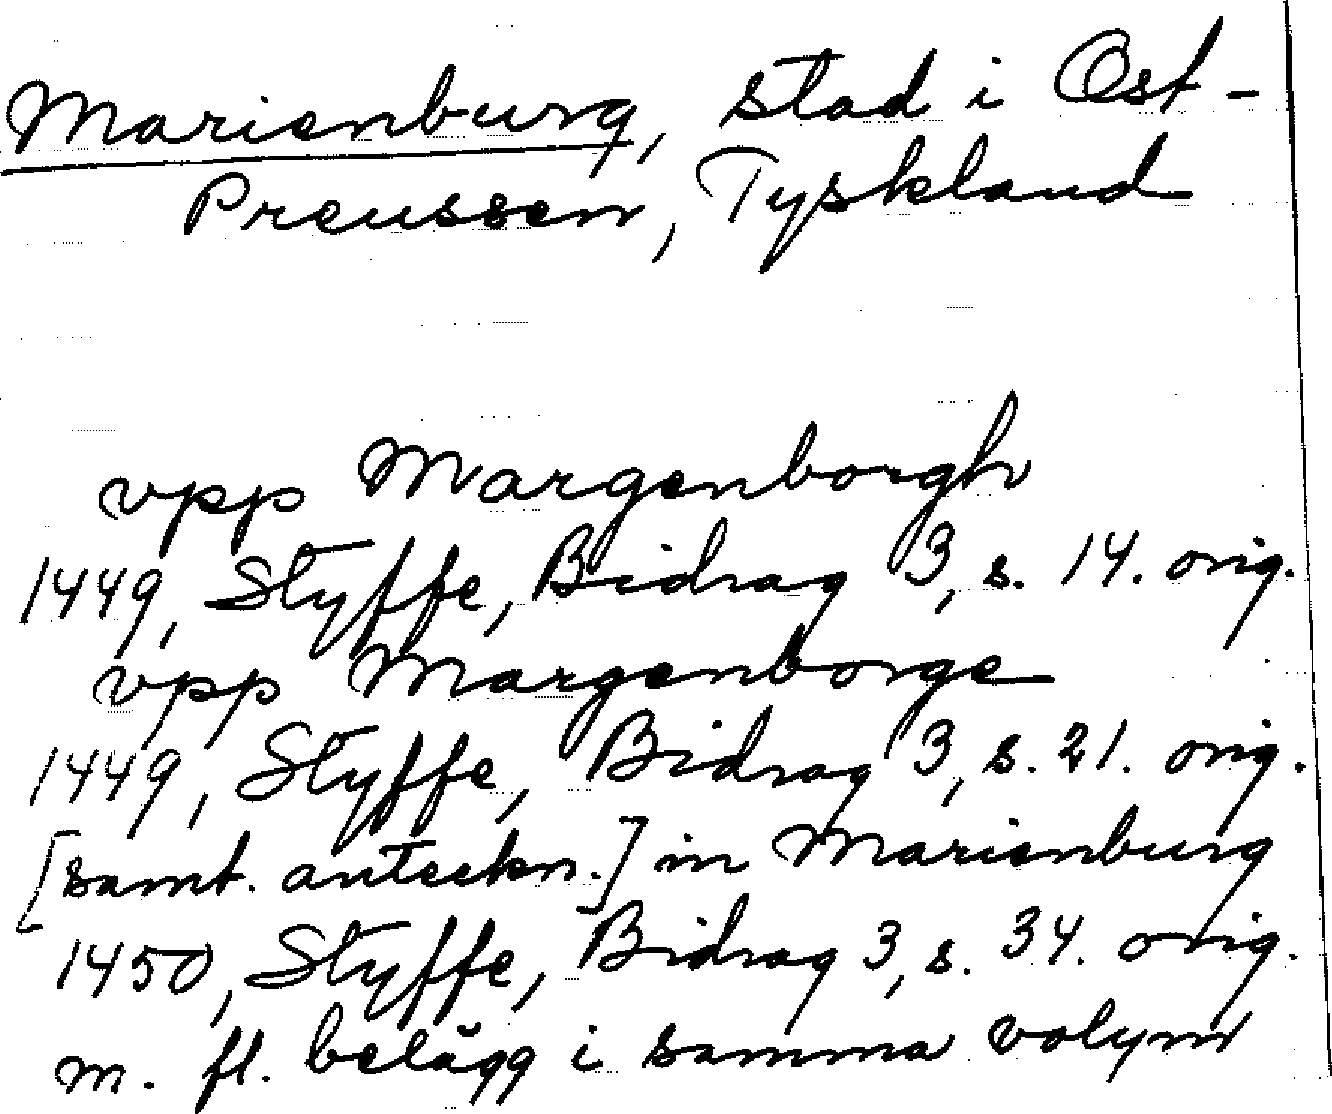 Marienburg, stad i Ost-
Preussen, Tyskland
vpp Margenborgh
1449, Styffe, Bidrag 3, s. 14. orig.
vpp Margenborge
1449, Styffe, Bidrag 3, s. 21. orig.
[samt. anteckn.] in Marienburg
1450, Styffe, Bidrag 3, s. 34. orig.
m. fl. belägg i samma volym